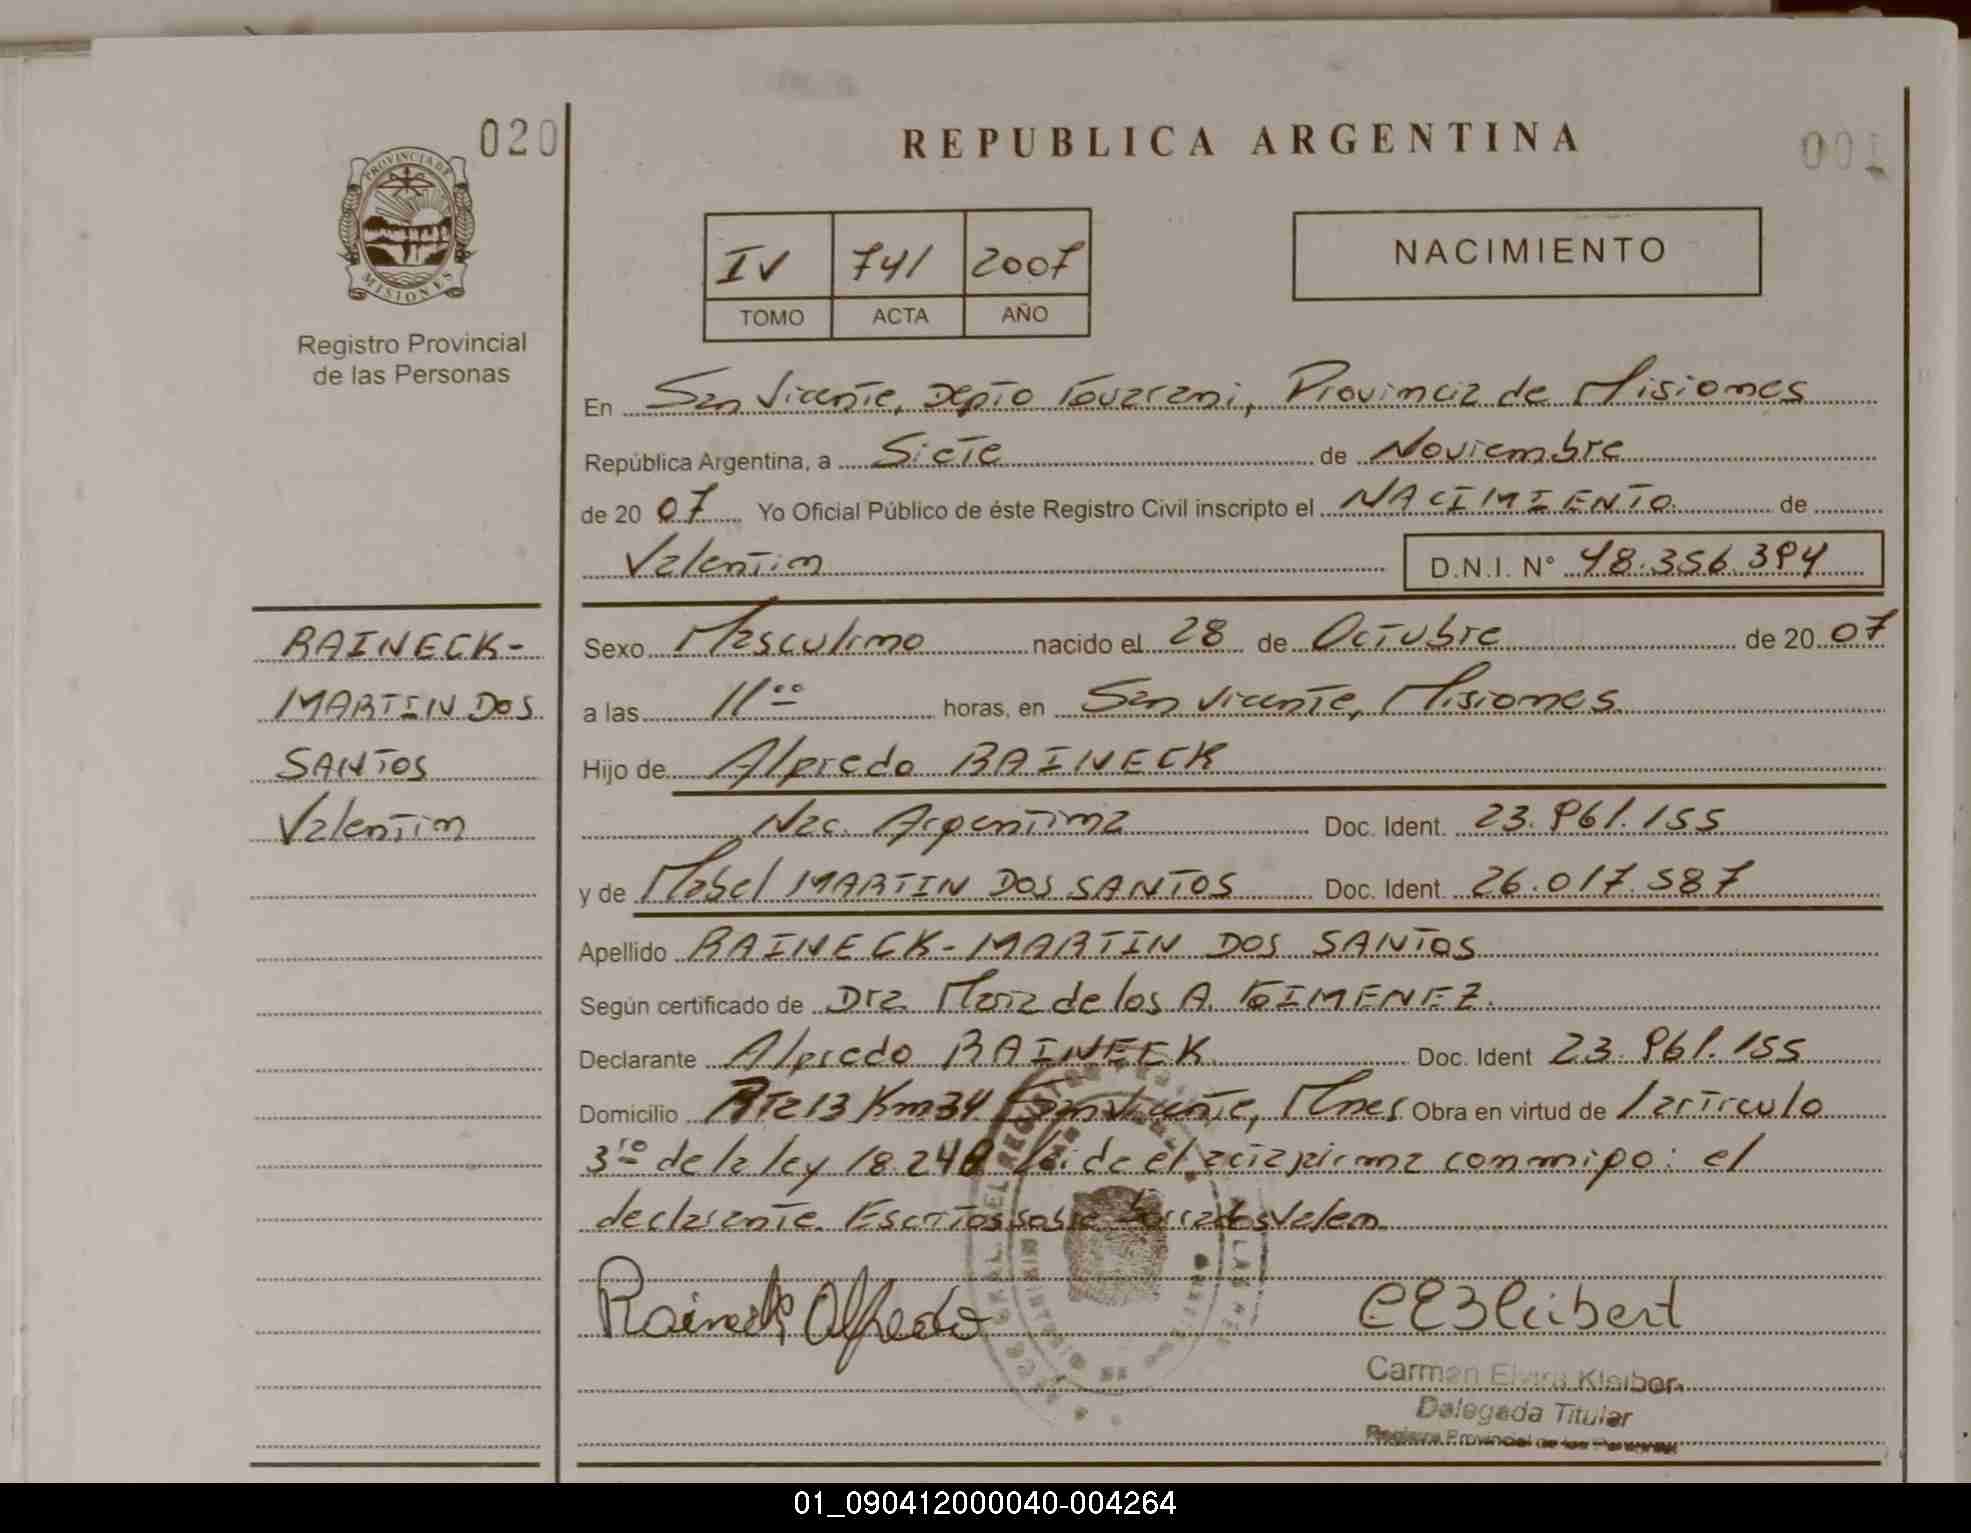 020
REPUBLICA ARGENTINA
001
PROVINCIA DE
MISIONES
Registro Provincial
de las Personas
IV 741 2007
TOMO ACTA AÑO
NACIMIENTO
En San Vicente, Depto Guarani, Provincia de Misiones
República Argentina, a Siete de Noviembre
de 2007 Yo Oficial Público de éste Registro Civil inscripto el NACIMIENTO de
Valentin D.N.I. Nº 48.356.394
RAINECK-
MARTIN DOS
SANTOS
Valentin
Sexo Masculino nacido el 28 de Octubre de 2007
a las 11:00 horas, en San Vicente, Misiones
Hijo de Alfredo RAINECK
Nac. Argentina Doc. Ident. 23.961.155
y de Mabel MARTIN DOS SANTOS Doc. Ident. 26.017.587
Apellido RAINECK-MARTIN DOS SANTOS
Según certificado de Dra. Maria de los A. GIMENEZ.
Declarante Alfredo RAINECK Doc. Ident 23.961.155
Domicilio Rta 13 Km 34 San Vicente, Mnes Obra en virtud de l artículo
3ro de la ley 18.248 leida el acta firma conmigo: el
declarante. Escritos sobre borrados valen
Raineck Alfredo
CEKleibert
Carmen Elvira
Delegada Titular
Registro Provincial de las Personas
01_090412000040-004264